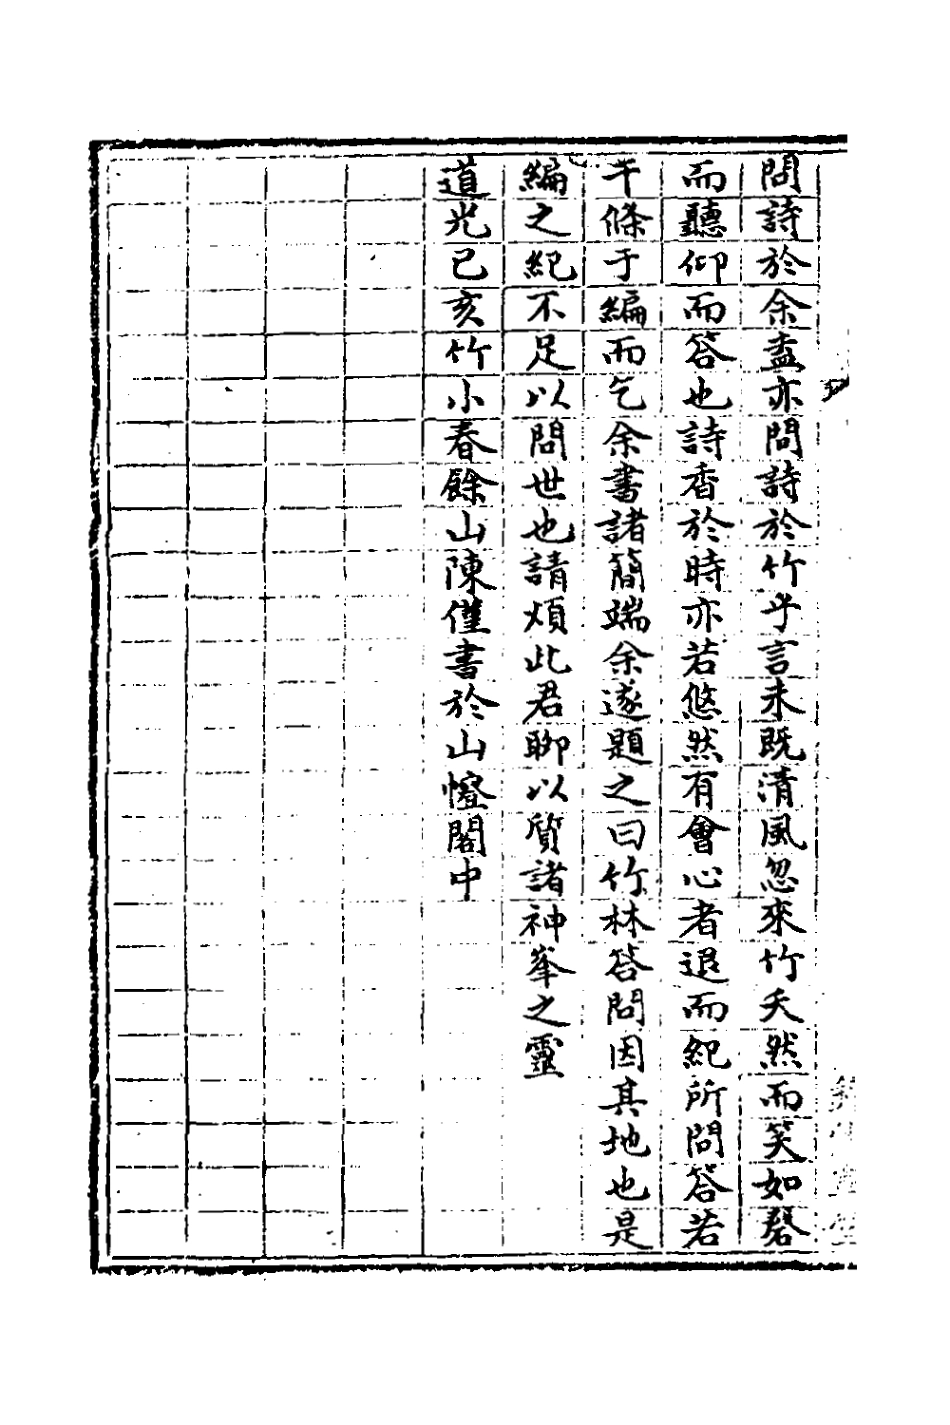 問詩於余盍亦問詩於竹乎言未既清風忽來竹夭然而笑如磬
而聽仰而答也詩香於時亦若悠然有會心者退而紀所問答若
干條于編而乞余書諸簡端余遂題之曰竹林答問因其地也是
編之紀不足以問世也請煩此君聊以質諸神峯之靈
道光己亥竹小春餘山陳僅書於山憕閣中